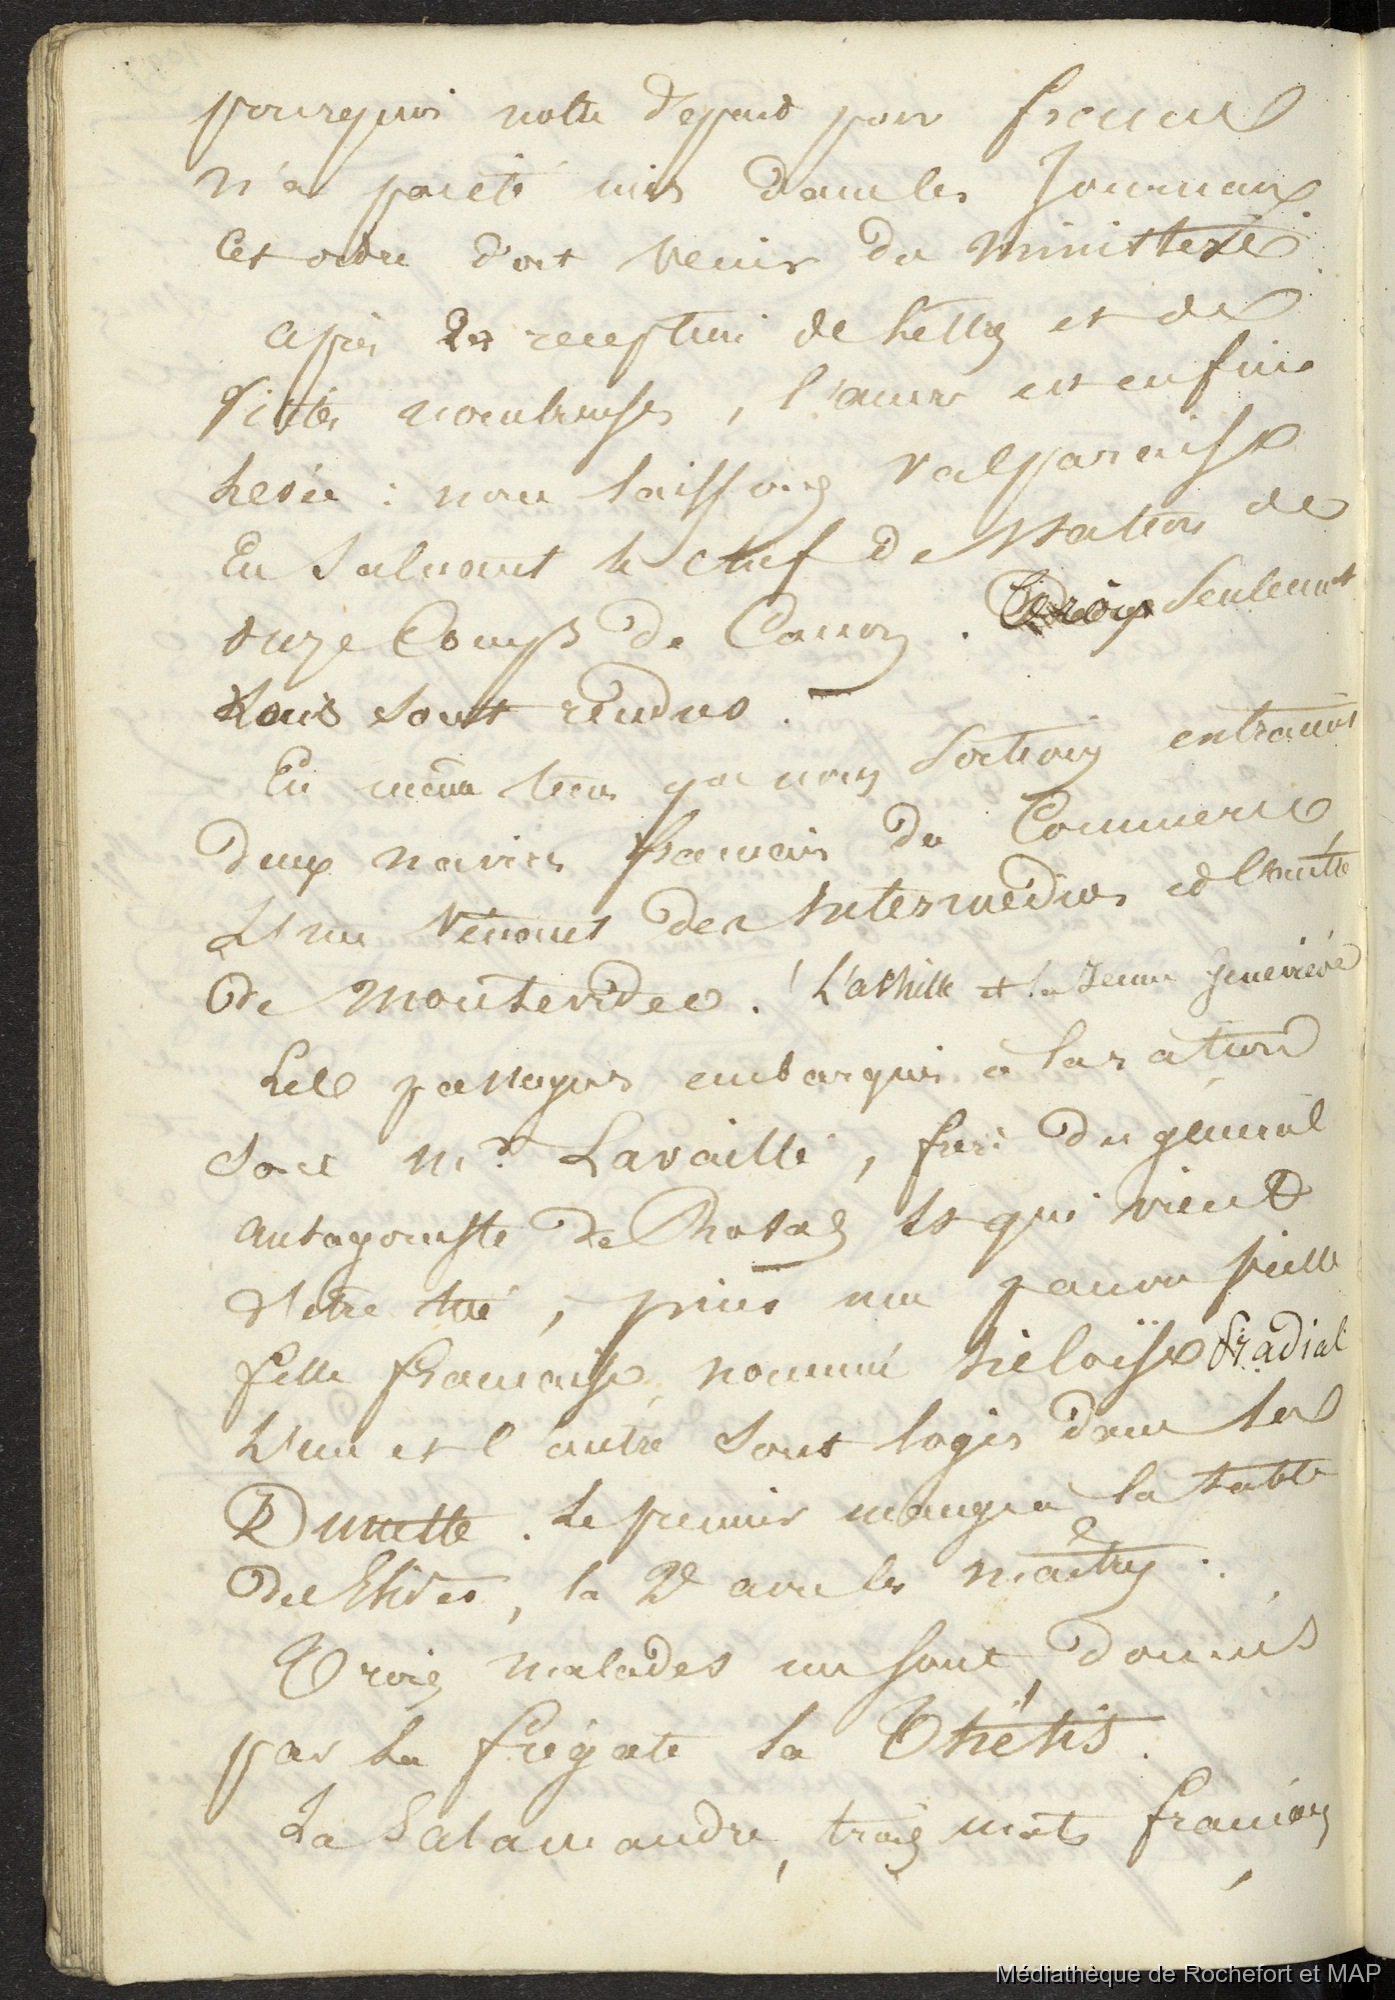 pourquoi notre depart pour france
n'a pas été mis dans les Journaux
Cet ordre doit venir du ministere.
après la reception de lettres et de
visites nombreuses, l'ancre est enfin
levée : nous laissons Valparaiso
En Saluant le chef de station de
onze Coups de Canon. Seulement
sont rendus.
En même tems que nous Sortions entraient
deux navires francais du Commerce,
L'un Venant des Intermedios et l'autre
de Montevideo. L'achille et la Jeune Genevieve
Les passagers embarqués à la
sont Mr. Lavaille, frere du general
antagoniste de Rosas et qui vient
d'etre tué, puis une pauvre vielle
fille francaise, nommé héloïse Fradial
L'un et l'autre sont logés dans la
Dunette. Le premier mange a la table
des Elèves, la 2e avec les maîtres.
Trois malades me sont donnés
par la frégate la Thétis.
La Salamandre, trois mats francais,
Médiathèque de Rochefort et MAP